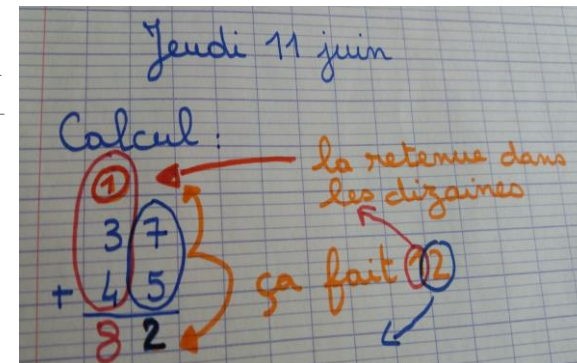 Jeudi 11 juin
Calcul :
1
la retenue dans
les dizaines
3 7
+ 4 5
ça fait 12
8 2